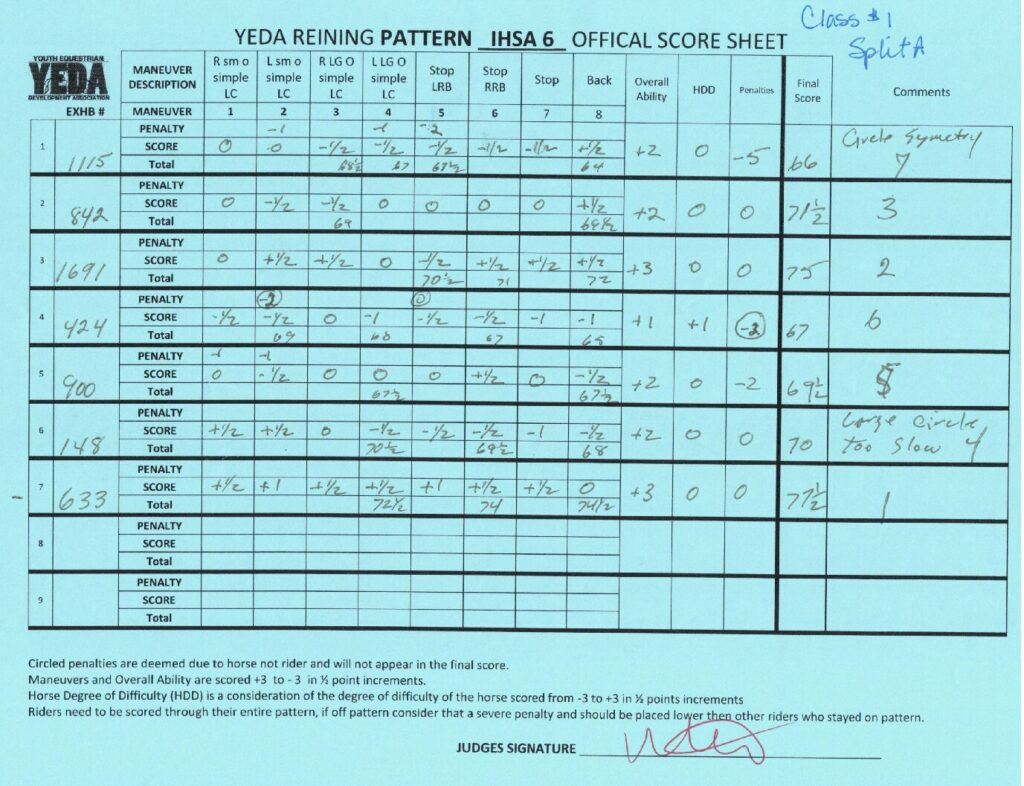 Class #1
Split A
YEDA REINING PATTERN IHSA 6 OFFICAL SCORE SHEET
YOUTH EQUESTRIAN
YEDA
DEVELOPMENT ASSOCIATION
EXHB #
MANEUVER DESCRIPTION | R sm o simple LC | L sm o simple LC | R LG O simple LC | L LG O simple LC | Stop LRB | Stop RRB | Stop | Back | Overall Ability | HDD | Penalties | Final Score | Comments
MANEUVER | 1 | 2 | 3 | 4 | 5 | 6 | 7 | 8
1 1115
PENALTY -1 -1 -2
SCORE 0 0 -1/2 -1/2 -1/2 -1/2 -1/2 +1/2 +2 0 -5 66 Circle Symetry 7
Total 68½ 67 64
2 842
PENALTY
SCORE 0 -1/2 -1/2 0 0 0 0 +1/2 +2 0 0 71½ 3
Total 69 69½
3 1691
PENALTY
SCORE 0 +1/2 +1/2 0 -1/2 +1/2 +1/2 +1/2 +3 0 0 75 2
Total 70½ 71 72
4 424
PENALTY -2 0
SCORE -1/2 -1/2 0 -1 -1/2 -1/2 -1 -1 +1 +1 -2 67 6
Total 69 68 67 65
5 900
PENALTY -1 -1
SCORE 0 -1/2 0 0 0 +1/2 0 -1/2 +2 0 -2 69½ 5
Total 67½ 67½
6 148
PENALTY
SCORE +1/2 +1/2 0 -1/2 -1/2 -1/2 -1 -1/2 +2 0 0 70 Large Circle too slow 4
Total 70½ 69½ 68
7 633
PENALTY
SCORE +1/2 +1 +1/2 +1/2 +1 +1/2 +1/2 0 +3 0 0 77½ 1
Total 72½ 74 74½
8
PENALTY
SCORE
Total
9
PENALTY
SCORE
Total
Circled penalties are deemed due to horse not rider and will not appear in the final score.
Maneuvers and Overall Ability are scored +3 to - 3 in ½ point increments.
Horse Degree of Difficulty (HDD) is a consideration of the degree of difficulty of the horse scored from -3 to +3 in ½ points increments
Riders need to be scored through their entire pattern, if off pattern consider that a severe penalty and should be placed lower then other riders who stayed on pattern.
JUDGES SIGNATURE